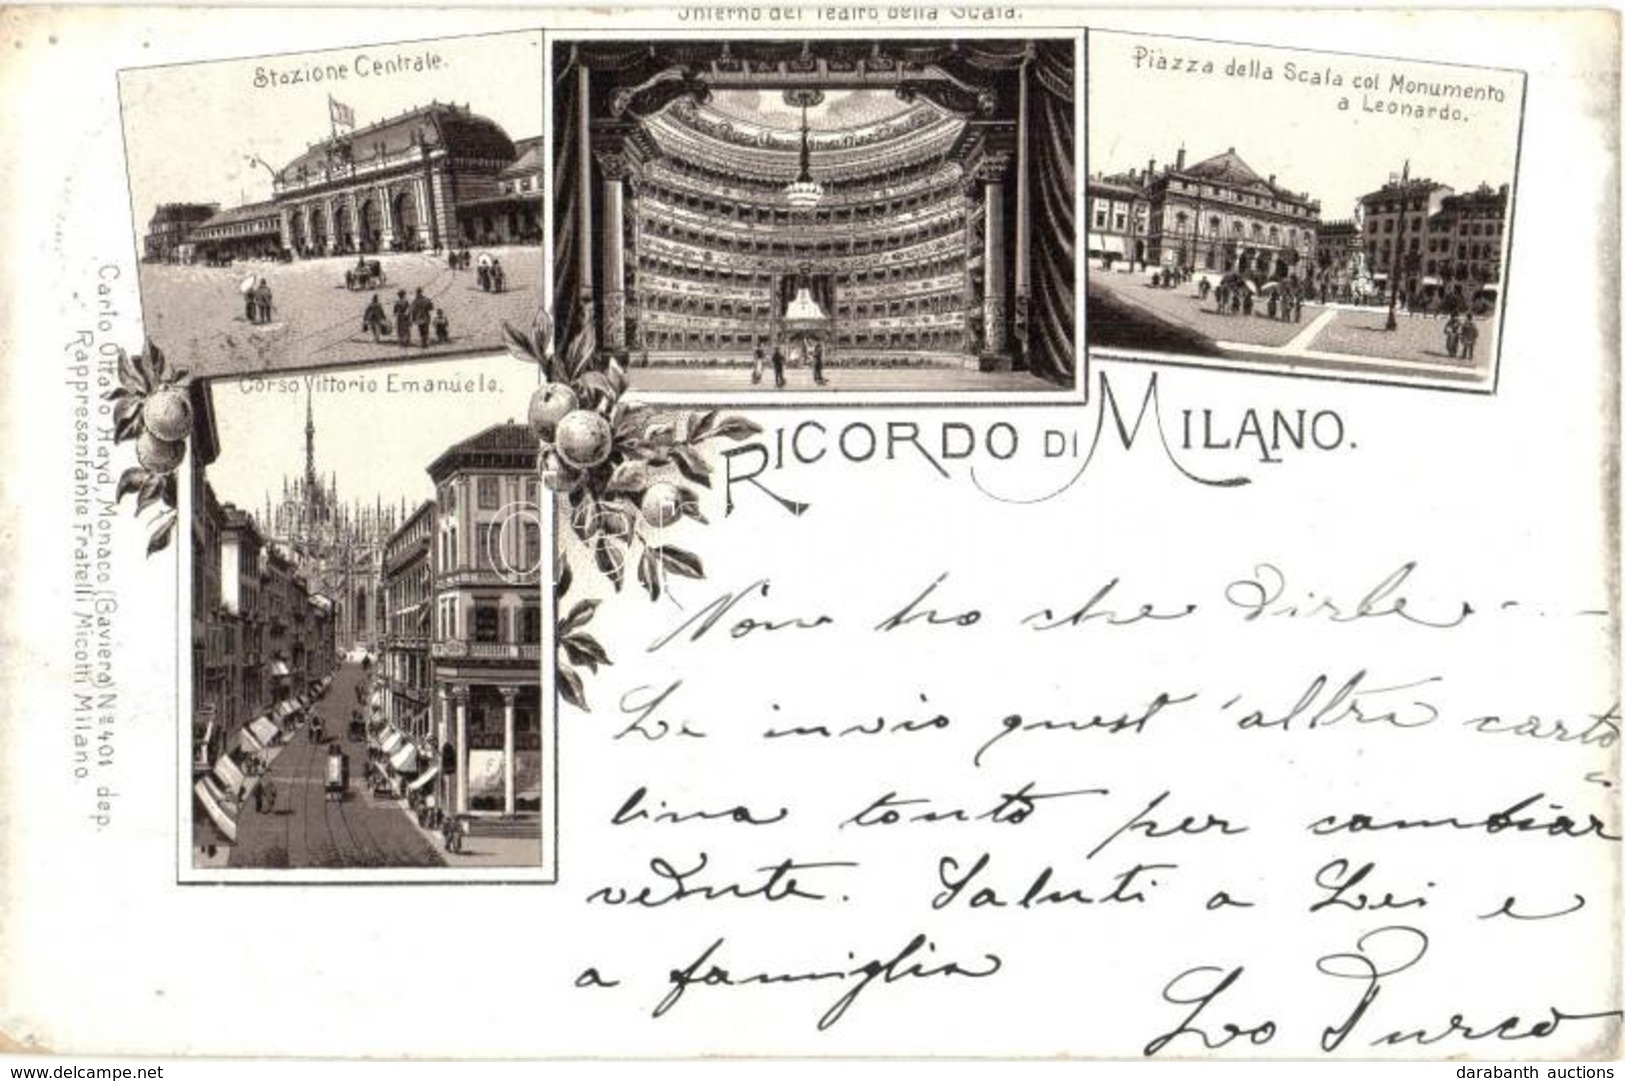 Interno del Teatro della Scala.
Stazione Centrale.
Piazza della Scala col Monumento
a Leonardo.
Corso Vittorio Emanuele.
RICORDO DI MILANO.
Carto Ottavo Hayd, Monaco (Baviera) Nº 401 dep.
Rappresentante Fratelli Micotti Milano.
Non ho che dirle . - . . —
Le invio quest'altra carto
lina tanto per cambiar
vedute. Saluti a Lei e
a famiglia
Lo Turco
www.delcampe.net
darabanth auctions